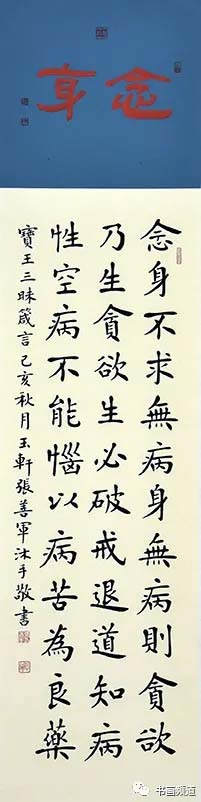 念身
念身不求無病身無病則貪欲
乃生貪欲生必破戒退道知病
性空病不能惱以病苦為良藥
寶王三昧箴言己亥秋月玉軒張善軍沐手敬書
书画频道